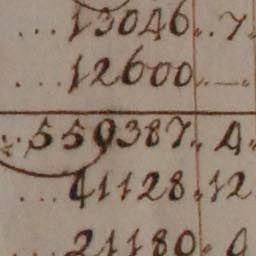 ...13046..7.
...12600..—.
559387.4.
...41128.12
...21180.0